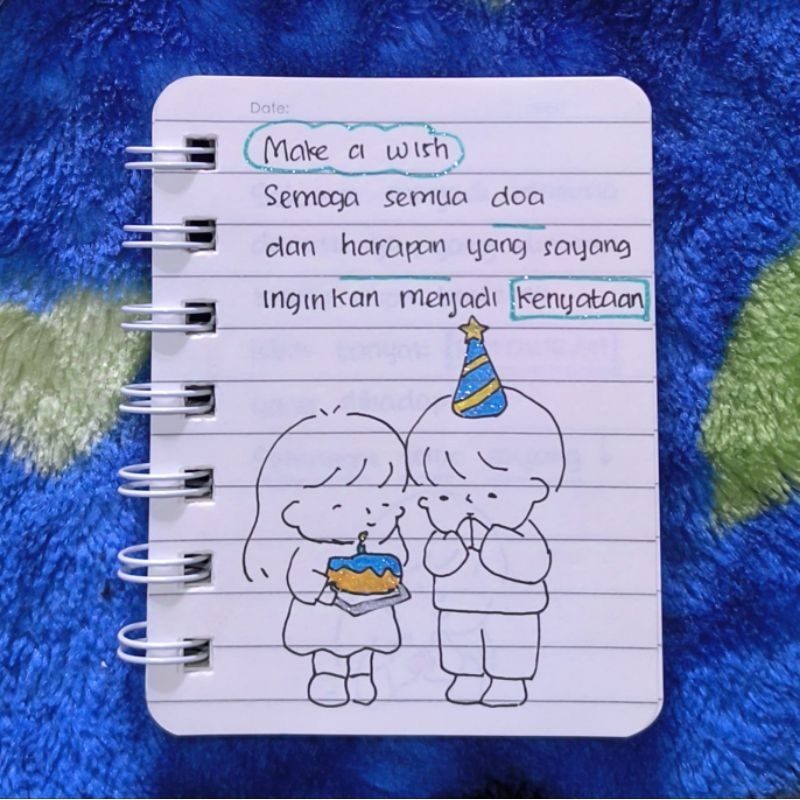 Date:
Make a wish
Semoga semua doa
dan harapan yang sayang
inginkan menjadi kenyataan